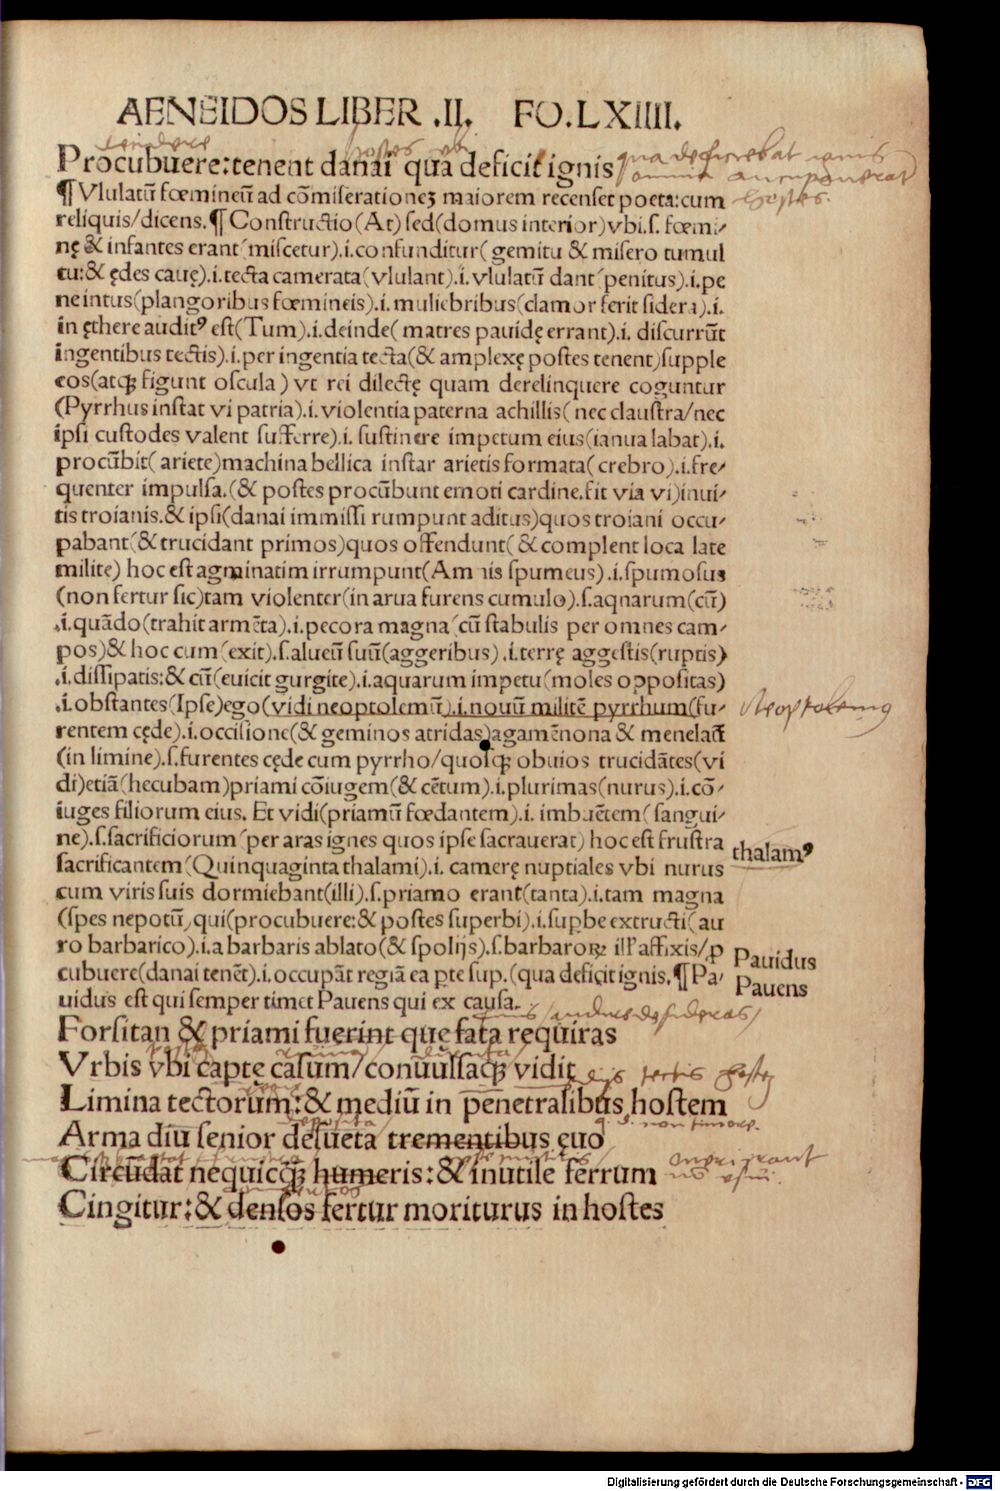 AENEIDOS LIBER .II. FO.LXIIII.
Procubuere: tenent danai qua deficit ignis
¶ Vlulatū fœmineū ad cōmiserationeȝ maiorem recenset poeta: cum
reliquis/dicens. ¶ Constructio (At) sed (domus interior) vbi.s. fœmi⸗
nę & infantes erant (miscetur).i.confunditur (gemitu & misero tumul
tu: & ędes cauę).i.tecta camerata (vlulant).i.vlulatū dant (penitus).i.pe
ne intus (plangoribus fœmineis).i.muliebribus (clamor ferit sidera).i.
in ęthere auditꝰ est (Tum).i.deinde (matres pauidę errant).i. discurrūt
ingentibus tectis).i.per ingentia tecta (& amplexę postes tenent) supple
eos (atqꝫ figunt oscula) vt rei dilectę quam derelinquere coguntur
(Pyrrhus instat vi patria).i.violentia paterna achillis (nec claustra/nec
ipsi custodes valent sufferre).i. sustinere impetum eius (ianua labat).i.
procūbit (ariete) machina bellica instar arietis formata (crebro).i.fre⸗
quenter impulsa. (& postes procūbunt emoti cardine. fit via vi) inui⸗
tis troianis. & ipsi (danai immissi rumpunt aditus) quos troiani occu⸗
pabant (& trucidant primos) quos offendunt (& complent loca late
milite) hoc est agminatim irrumpunt (Amnis spumeus).i.spumosus
(non fertur sic) tam violenter (in arua furens cumulo).s.aqnarum (cū)
.i.quādo (trahit armēta).i.pecora magna (cū stabulis per omnes cam⸗
pos) & hoc cum (exit).s.alueū suū (aggeribus).i.terrę aggestis (ruptis)
.i.dissipatis: & cū (euicit gurgite).i.aquarum impetu (moles oppositas)
.i.obstantes (Ipse) ego (vidi neoptolemū).i.nouū militē pyrrhum (fu⸗
Neoptolemꝰ
rentem cęde).i.occisione (& geminos atridas) agamēnona & menelaū
(in limine).s.furentes cęde cum pyrrho/quosqꝫ obuios trucidātes (vi
di) etiā (hecubam) priami cōiugem (& cētum).i.plurimas (nurus).i.cō⸗
iuges filiorum eius. Et vidi (priamū fœdantem).i. imbuētem (sangui⸗
ne).s.sacrificiorum (per aras ignes quos ipse sacrauerat) hoc est frustra
thalamꝰ
sacrificantem (Quinquaginta thalami).i. camerę nuptiales vbi nurus
cum viris suis dormiebant (illi).s.priamo erant (tanta).i.tam magna
(spes nepotū, qui (procubuere: & postes superbi).i.supbe extructi (au
ro barbarico).i.a barbaris ablato (& spolijs).s.barbaroꝝ ill' affixis/p
Pauidus
cubuere (danai tenēt).i.occupāt regiā ea pte sup. (qua deficit ignis. ¶ Pa⸗
Pauens
uidus est qui semper timet Pauens qui ex causa.
Forsitan & priami fuerint quę fata requiras
Vrbis vbi captę casum/conuulsaqꝫ vidit
Limina tectorum: & mediū in penetralibus hostem
Arma diu senior desueta trementibus ęuo
Circūdat nequicqꝫ humeris: & inutile ferrum
Cingitur: & densos fertur moriturus in hostes
Digitalisierung gefördert durch die Deutsche Forschungsgemeinschaft - DFG